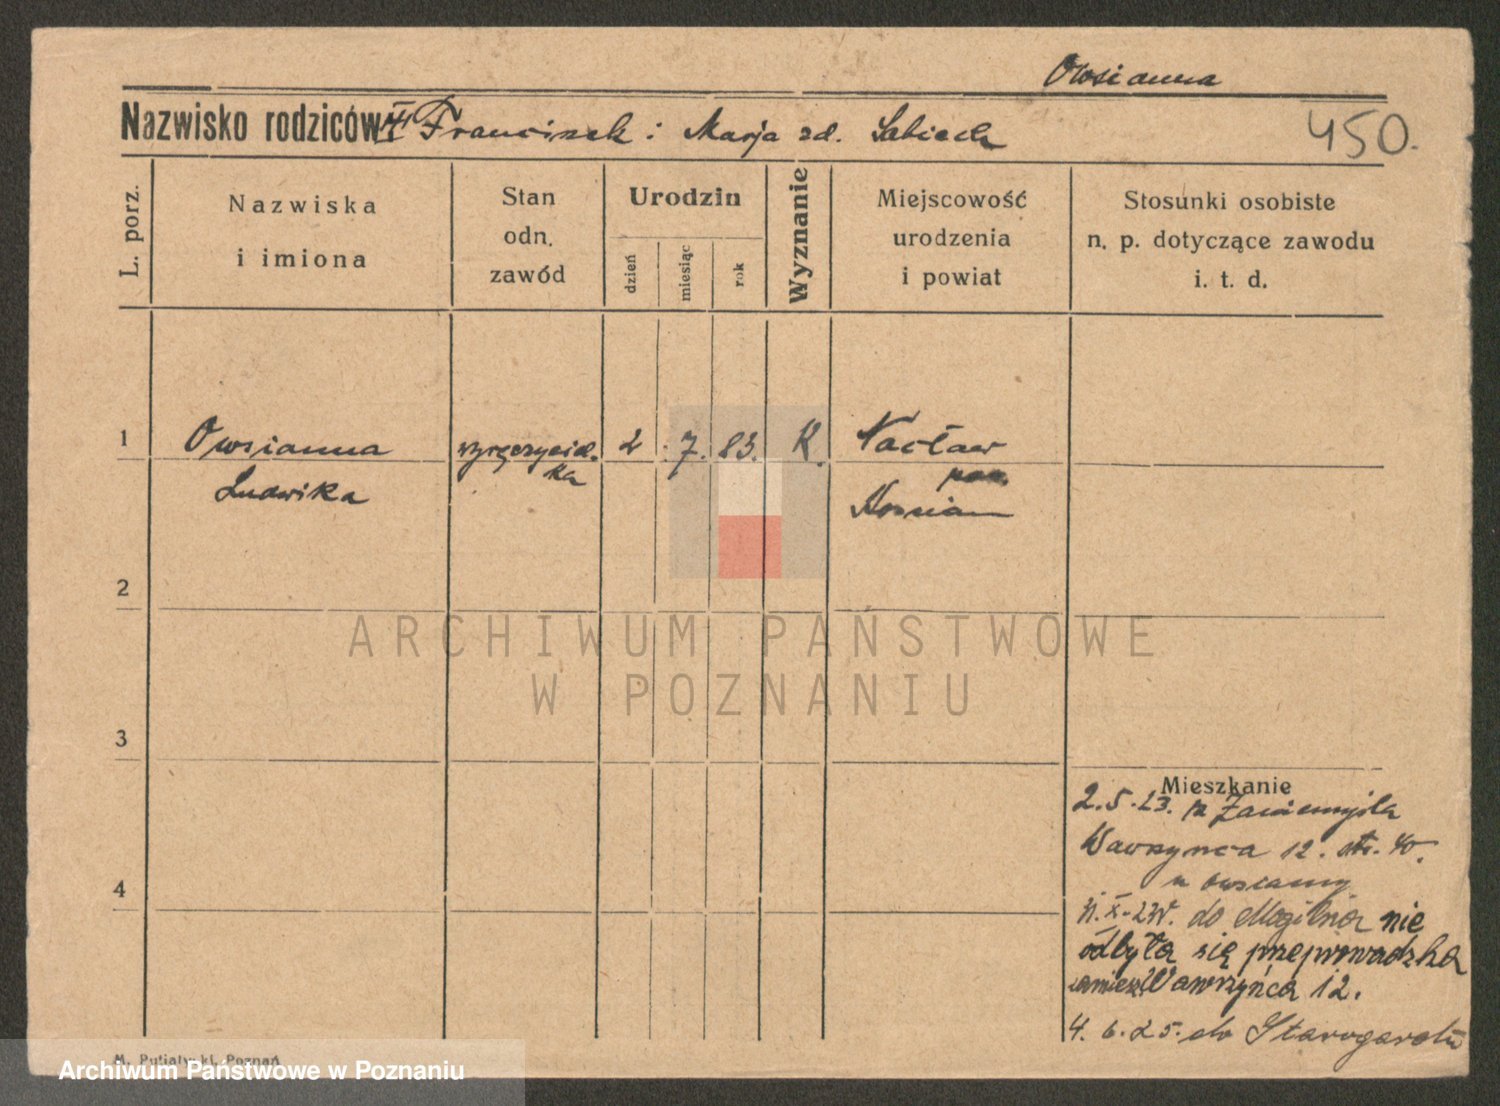 Owsianna
Nazwisko rodziców: Franciszek i Marja zd.
450.
L. porz.
Nazwiska
i imiona
Stan
odn.
zawód
Urodzin
dzień
miesiąc
rok
Wyznanie
Miejscowość
urodzenia
i powiat
Stosunki osobiste
n. p. dotyczące zawodu
i. t. d.
1 Owsianna 2. 7. 83. K. Nacław
ka
Ludwika pow.
2
ARCHIWUM PAŃSTWOWE
W POZNANIU
3
Mieszkanie
2.5.23. z Zaniemyśla
Wawrzyńca 12.
4
u Owsianny
do Mogilna nie
odbyła się przeprowadzka
zamieszk. Wawrzyńca 12.
4. 6. 25. do Starogardu
M. Putiatycki, Poznań
Archiwum Państwowe w Poznaniu